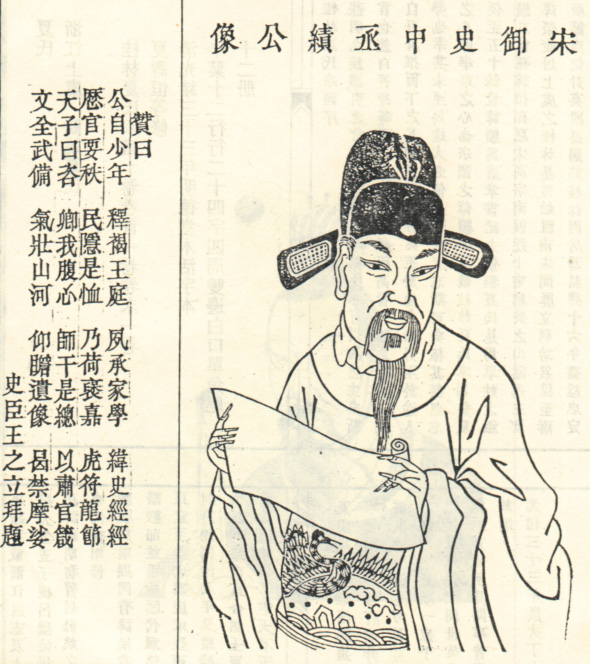 宋御史中丞績公像
贊曰
公自少年 釋褐王庭 夙承家學 緯史經經
歷官要秋 民隱是恤 乃荷褒嘉 虎符龍節
天子曰咨 卿我腹心 師干是總 以肅官箴
文全武備 氣壯山河 仰瞻遺像 曷禁摩娑
史臣王之立拜題